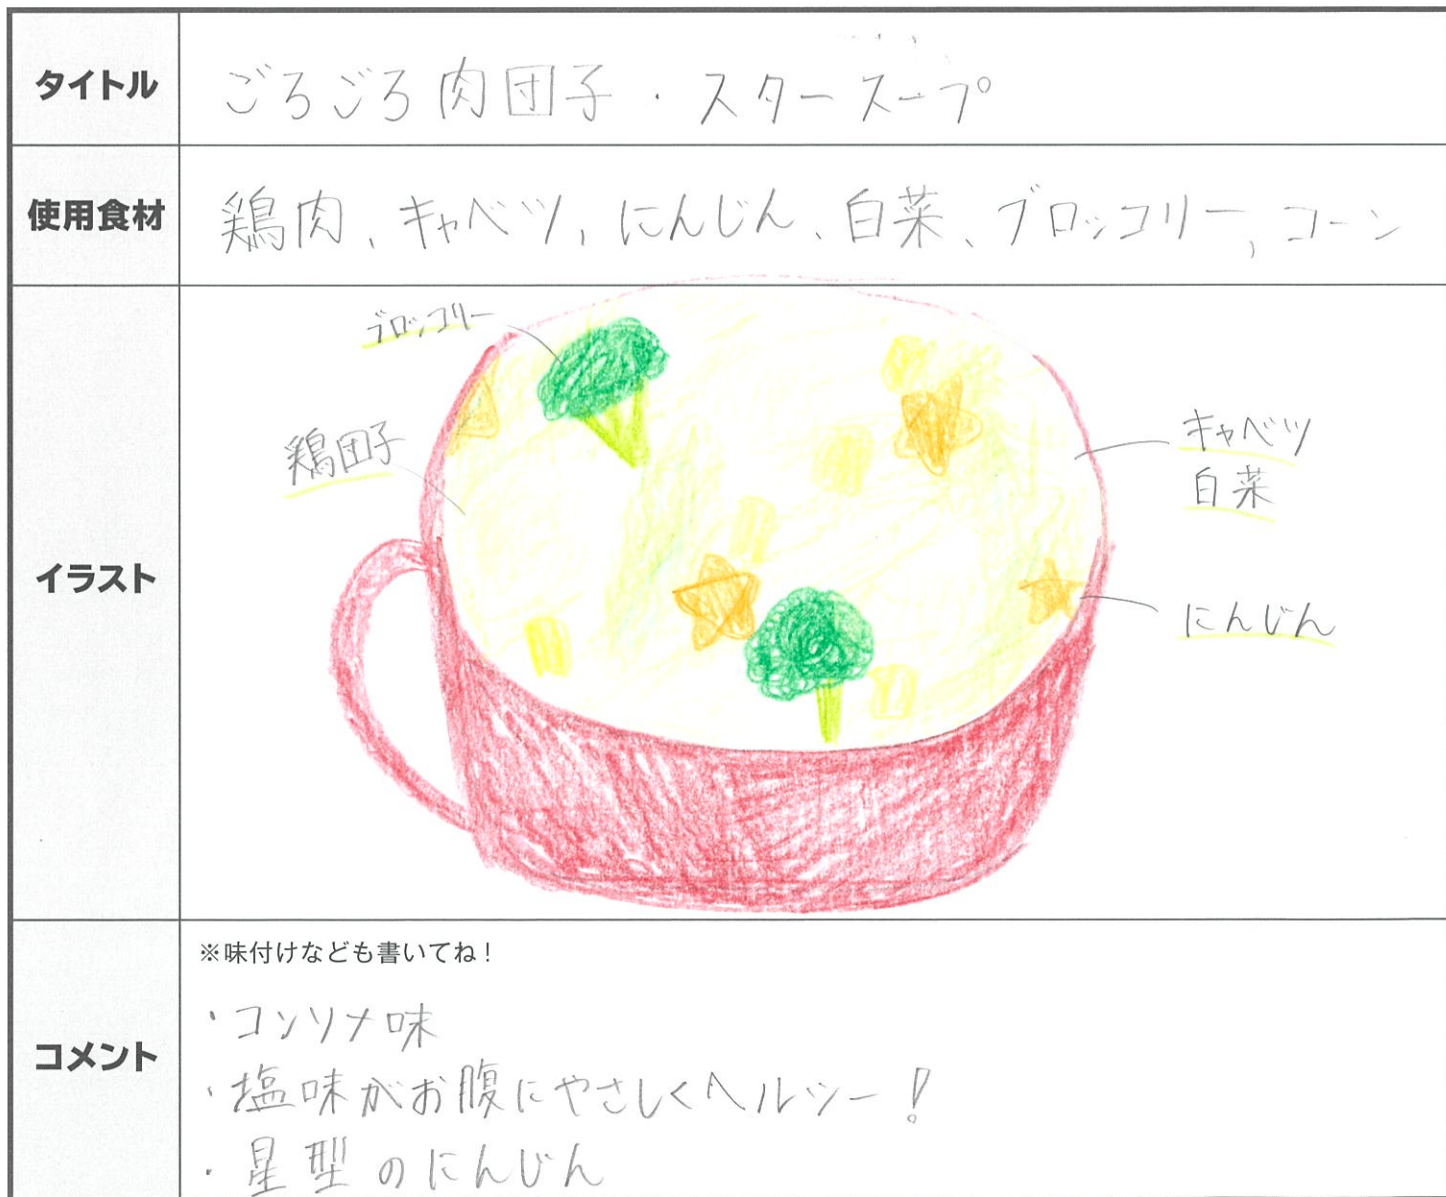 タイトル
ごろごろ肉団子・スタースープ
使用食材
鶏肉、キャベツ、にんじん、白菜、ブロッコリー、コーン
イラスト
ブロッコリー
鶏団子
キャベツ
白菜
にんじん
コメント
※味付けなども書いてね!
・コンソメ味
・塩味がお腹にやさしくヘルシー!
・星型のにんじん